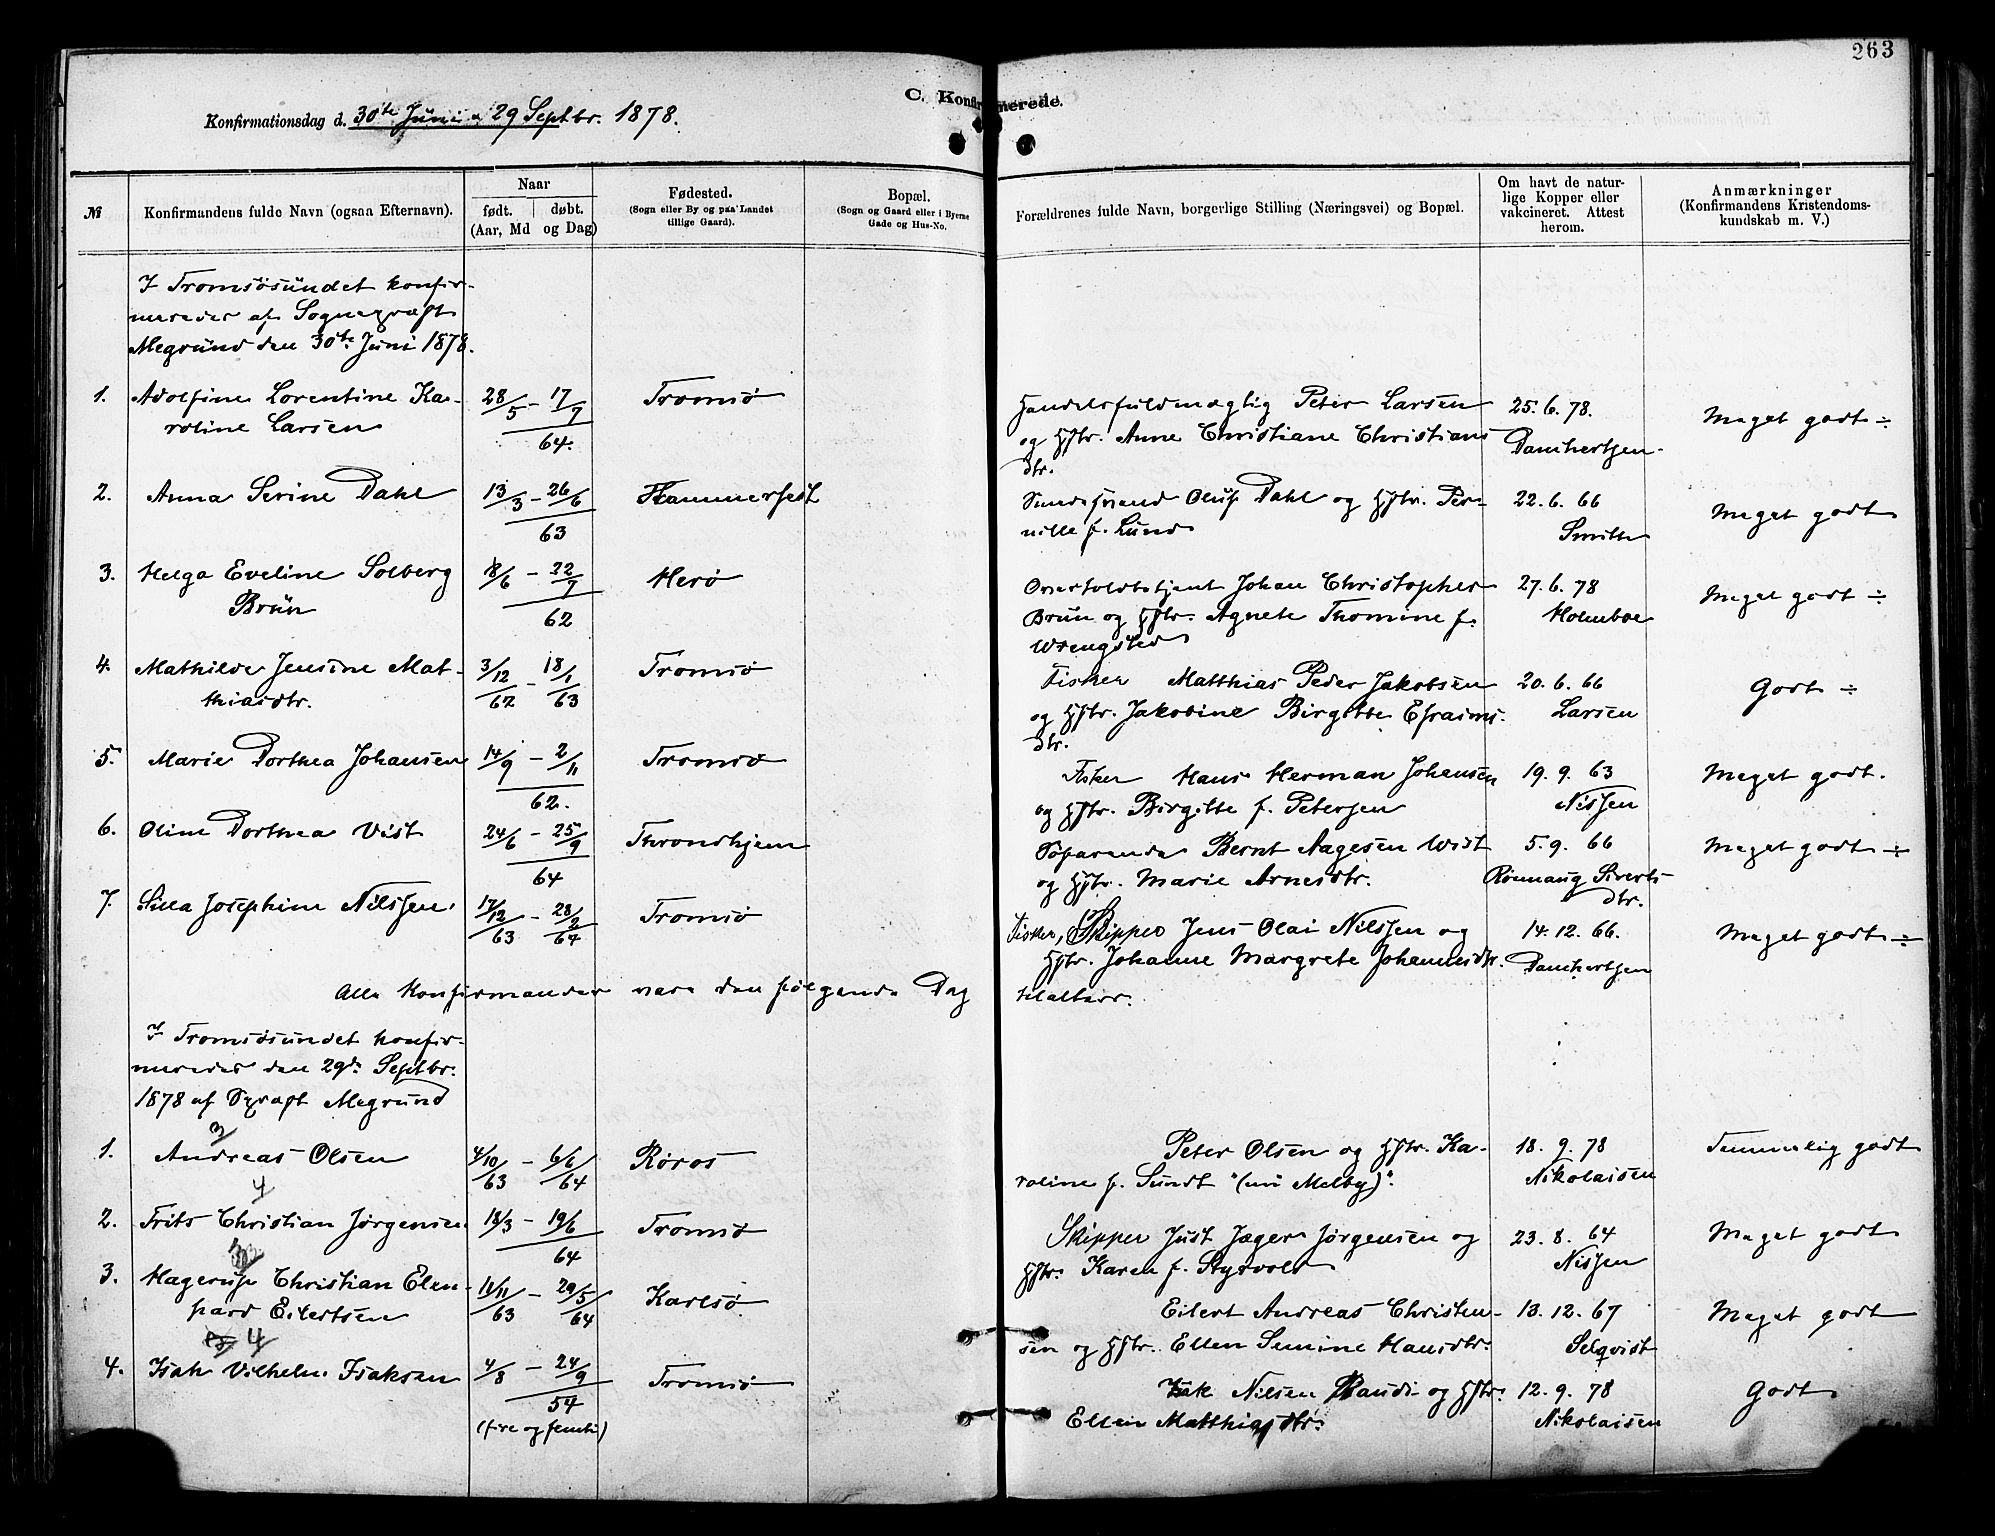 263
C. Konfirmerede.
Konfirmationsdag d. 30te Juni & 29 Septbr. 1878.
№
Konfirmandens fulde Navn (ogsaa Efternavn).
Naar
født. | døbt.
(Aar, Md og Dag)
Fødested.
(Sogn eller By og paa Landet
tillige Gaard).
Bopæl.
(Sogn og Gaard eller i Byerne
Gade og Hus-No.
Forældrenes fulde Navn, borgerlige Stilling (Næringsvei) og Bopæl.
Om havt de natur-
lige Kopper eller
vakcineret. Attest
herom.
Anmærkninger
(Konfirmandens Kristendoms-
kundskab m. V.)
I Tromsøsundet konfir-
mereder af Sognepræst
Megrund den 30te Juni 1878.
1. Adolfine Lorentine Ka-
roline Larsen
28/5 - 17/7
64.
Tromsø
Handelsfuldmægtig Peter Larsen
og Hstr. Anne Christiane Christians
dtr.
25. 6. 78.
Danchertsen
Meget godt ÷
2. Anna Serine Dahl
13/3 - 26/6
63
Hammerfest
Oluf Dahl og Hstr. Per-
nille f. Lund
22. 6. 66
Smith
Meget godt
3. Helga Eveline Solberg
Brün
18/6 - 22/7
62
Herø
Overtoldbetjent Johan Christopher
Brün og Hstr. Agnete Thomine f.
Wrengsted
27. 6. 78
Holmboe
Meget godt ÷
4. Mathilde Jensine Mat-
thiasdtr.
3/12 62 - 18/1 63
Tromsø
Fisker Matthias Peder Jakobsen
og Hstr. Jakobine Birgitte Efraims-
dtr.
20. 6. 66
Larsen
Godt ÷
5. Marie Dorthea Johansen
14/9 - 2/11
62.
Tromsø
Fisker Hans Herman Johansen
og Hstr. Birgitte f. Petersen
19. 9. 63
Nissen
Meget godt.
6. Oline Dorthea Vist
24/6 - 25/9
64
Throndhjem
Bernt Aagesen Wist
og Hstr. Marie Arnesdtr.
5. 9. 66
Rønnaug Siverts-
dtr.
Meget godt ÷
7. Silla Josephine Nilssen.
17/12 63 - 28/2 64
Tromsø
Fisker, Skipper Jens Olai Nilssen og
Hstr. Johanne Margrete Johannesdtr.
14. 12. 66.
Danchertsen
Meget godt ÷
Alle Konfirmander vare den følgende Dag
tilalters.
I Tromsøsundet konfir-
mereder den 29de Septbr.
1878 af Spræst Megrund
3
1. Andreas Olsen
4/10 63 - 6/6 64
Røros
Peter Olsen og Hstr. Ka-
roline f. Sundt "(nu Melby)".
18. 9. 78
Nikolaisen
Temmelig godt
4
2. Frits Christian Jørgensen
18/3 - 19/6
64
Tromsø
Skipper Just Jæger Jørgensen og
Hstr. Karen f. Styrvold
23. 8. 64
Nissen
Meget godt
3. Hagerup Christian Elen-
hard Eilertsen
11/11 63 - 29/5 64
Karlsø
Eilert Andreas Christen-
sen og Hstr. Ellen Semine Hansdtr.
13. 12. 67
Selqvist
Meget godt
4
4. Isak Vilhelm Isaksen
4/8 - 24/9
54
(fire og femti)
Tromsø
Isak Nilsen Baudi og Hstr.
Ellen Matthiasdtr.
12. 9. 78
Nikolaisen
Godt